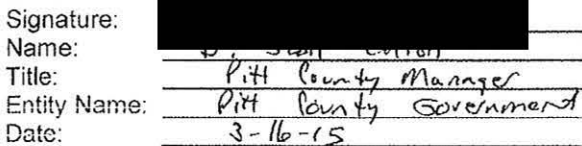 Signature:
Name:
Title: Pitt County Manager
Entity Name: Pitt County Government
Date: 3-16-15